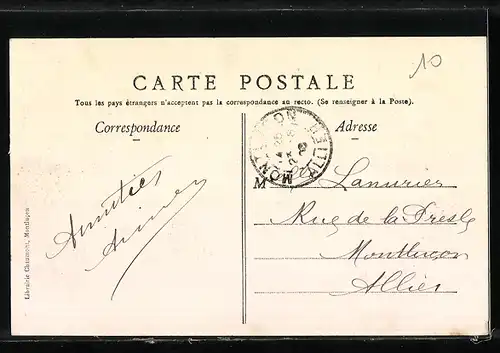 10
CARTE POSTALE
Tous les pays étrangers n'acceptent pas la correspondance au recto. (Se renseigner à la Poste).
Correspondance
Adresse
MONTLUÇON
ALLIER
Amitiés
M Lanurier
Rue de la Presle
Montluçon
Allier
Librairie Chaumont, Montluçon